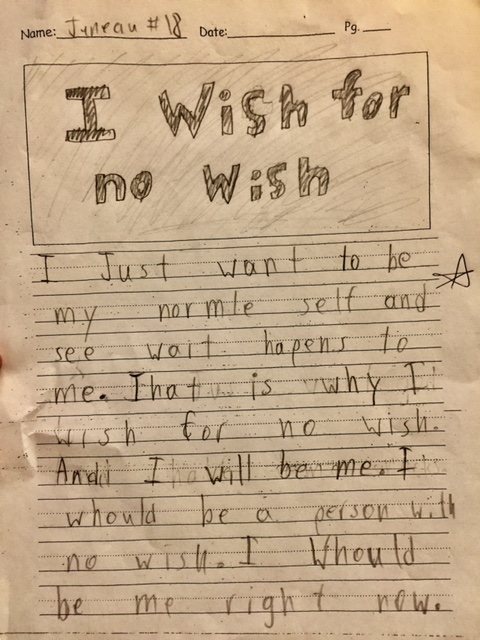 Name: Juneau #18 Date: Pg.
I Wish for
no wish
I Just want to be
my normle self and
see wait hapens to
me. That is why I
wish for no wish.
And I will be me. I
whould be a person with
no wish. I Whould
be me right now.